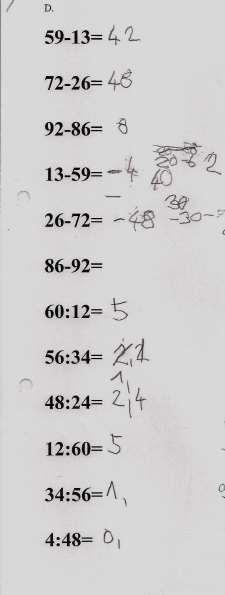 D.
59-13= 42
72-26= 48
92-86= 8
13-59= -4
20-6 2
40
26-72= -48
30
-30-
86-92=
60:12= 5
56:34= 2,1
1,
48:24= 2,4
12:60= 5
34:56= 1,
4:48= 0,